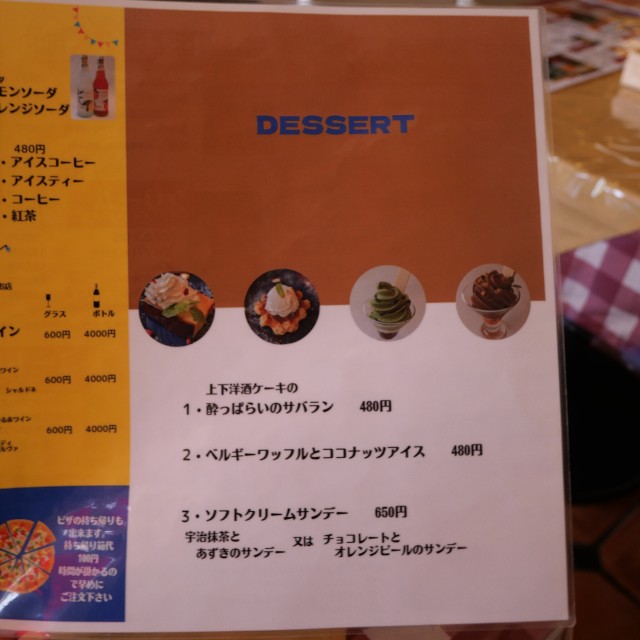 モンソーダ
レンジソーダ
480円
・アイスコーヒー
・アイスティー
・コーヒー
・紅茶
グラス ボトル
イン 600円 4000円
ワイン
シャルドネ 600円 4000円
ワイン
600円 4000円
ピザの持ち帰りも
出来ます。
持ち帰り箱代
100円
時間が掛かるの
で早めに
ご注文下さい
DESSERT
上下洋酒ケーキの
1・酔っぱらいのサバラン 480円
2・ベルギーワッフルとココナッツアイス 480円
3・ソフトクリームサンデー 650円
宇治抹茶と 又は チョコレートと
あずきのサンデー オレンジピールのサンデー